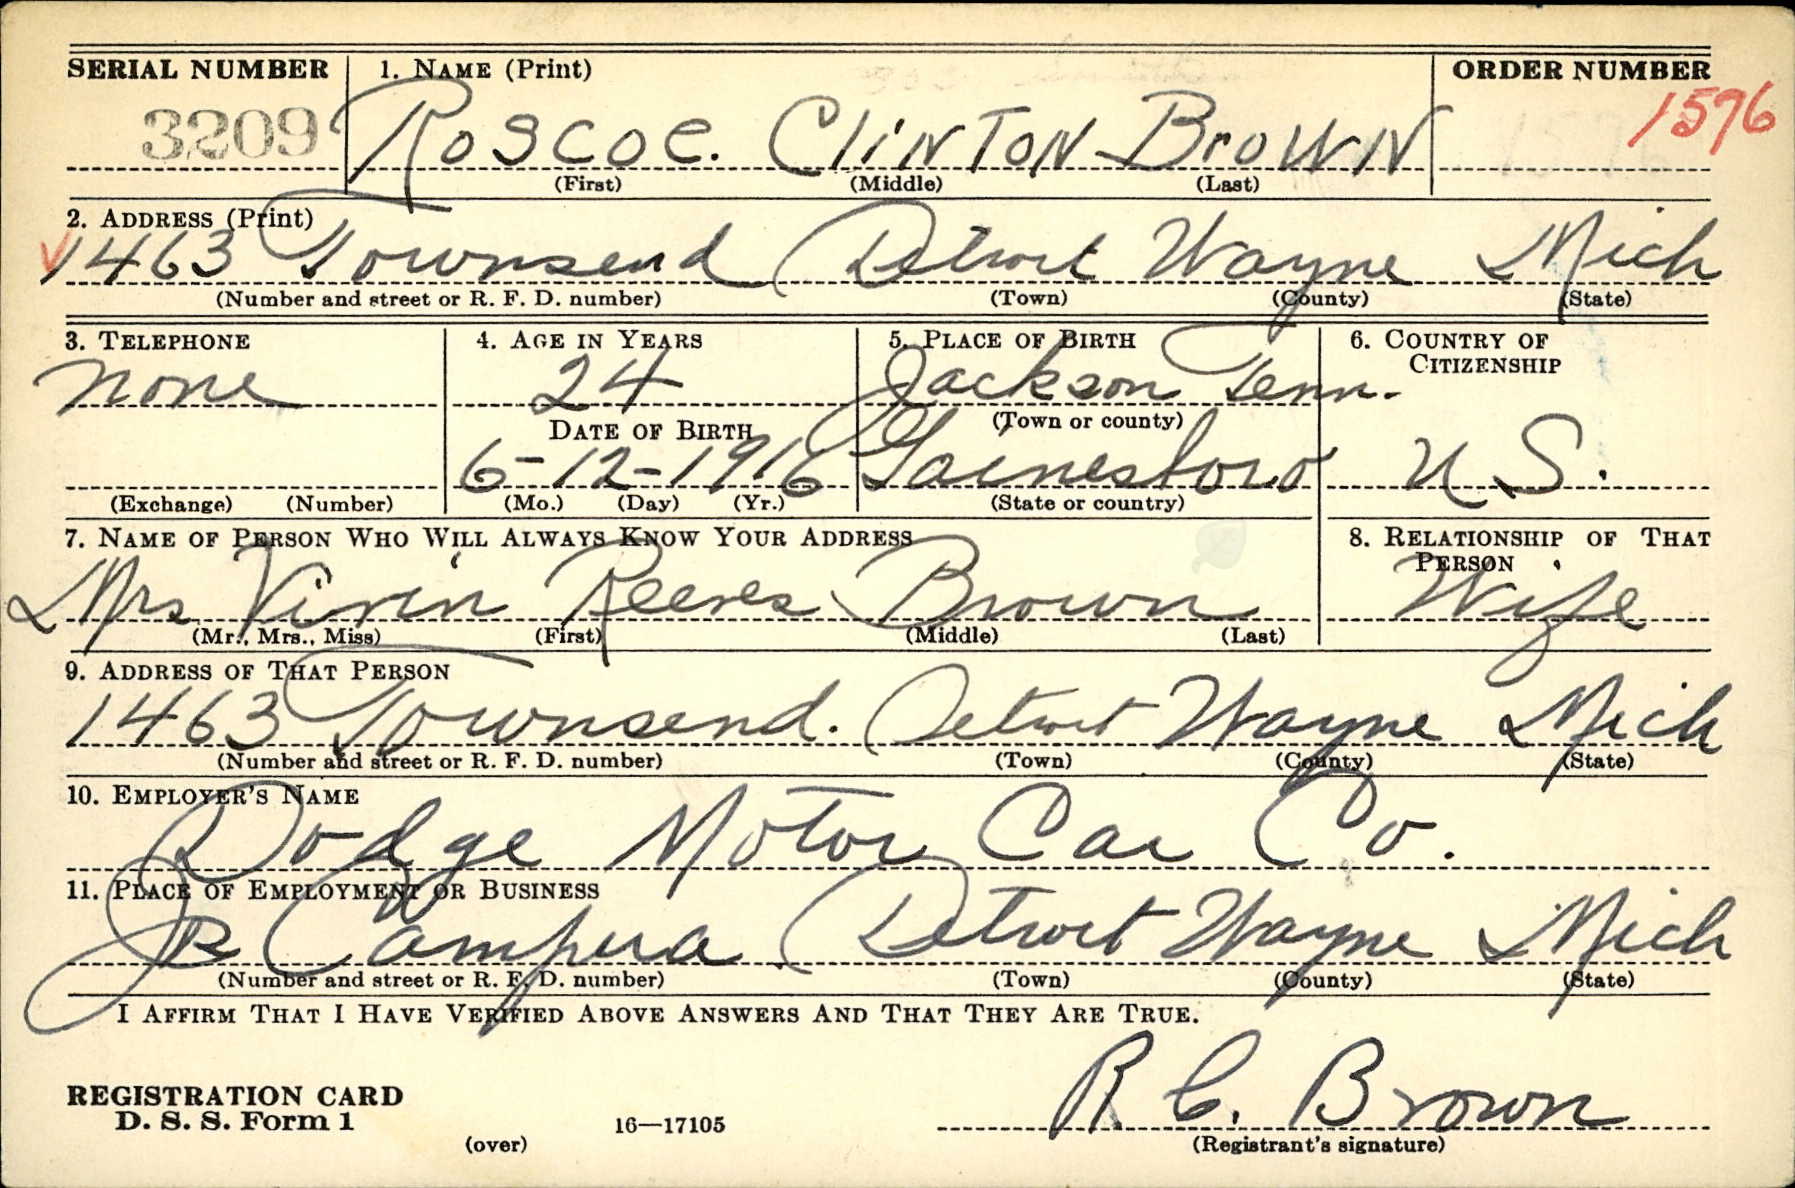 SERIAL NUMBER 1. NAME (Print) ORDER NUMBER
3209 Roscoe. Clinton Brown 1576
(First) (Middle) (Last)
2. ADDRESS (Print)
1463 Townsend Detroit Wayne Mich
(Number and street or R. F. D. number) (Town) (County) (State)
3. TELEPHONE 4. AGE IN YEARS 5. PLACE OF BIRTH 6. COUNTRY OF
CITIZENSHIP
None 24 Jackson Tenn.
DATE OF BIRTH (Town or county)
6-12-1916 Gainesboro U S.
(Exchange) (Number) (Mo.) (Day) (Yr.) (State or country)
7. NAME OF PERSON WHO WILL ALWAYS KNOW YOUR ADDRESS 8. RELATIONSHIP OF THAT
PERSON
Mrs Reeves Brown Wife
(Mr., Mrs., Miss) (First) (Middle) (Last)
9. ADDRESS OF THAT PERSON
1463 Townsend. Detroit Wayne Mich
(Number and street or R. F. D. number) (Town) (County) (State)
10. EMPLOYER'S NAME
Dodge Motor Car Co.
11. PLACE OF EMPLOYMENT OR BUSINESS
Detroit Wayne Mich
(Number and street or R. F. D. number) (Town) (County) (State)
I AFFIRM THAT I HAVE VERIFIED ABOVE ANSWERS AND THAT THEY ARE TRUE.
R C. Brown
REGISTRATION CARD
D. S. S. Form 1 16—17105
(over) (Registrant's signature)